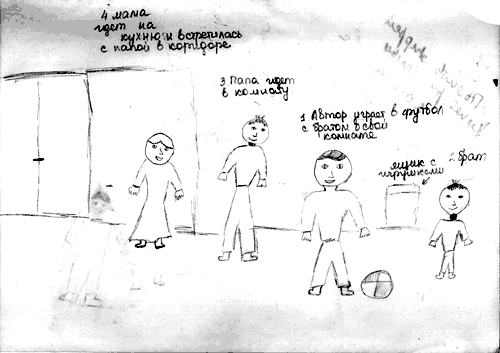 4 мама
идет на
кухню и встретилась
с папой в коридоре
3 Папа идет
в комнату
1 Автор играет в футбол
с братом в свой
комнате
ящик с
игрушками
2 брат